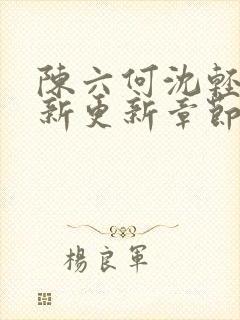 陳六何沈輕
新更新章節
楊良軍